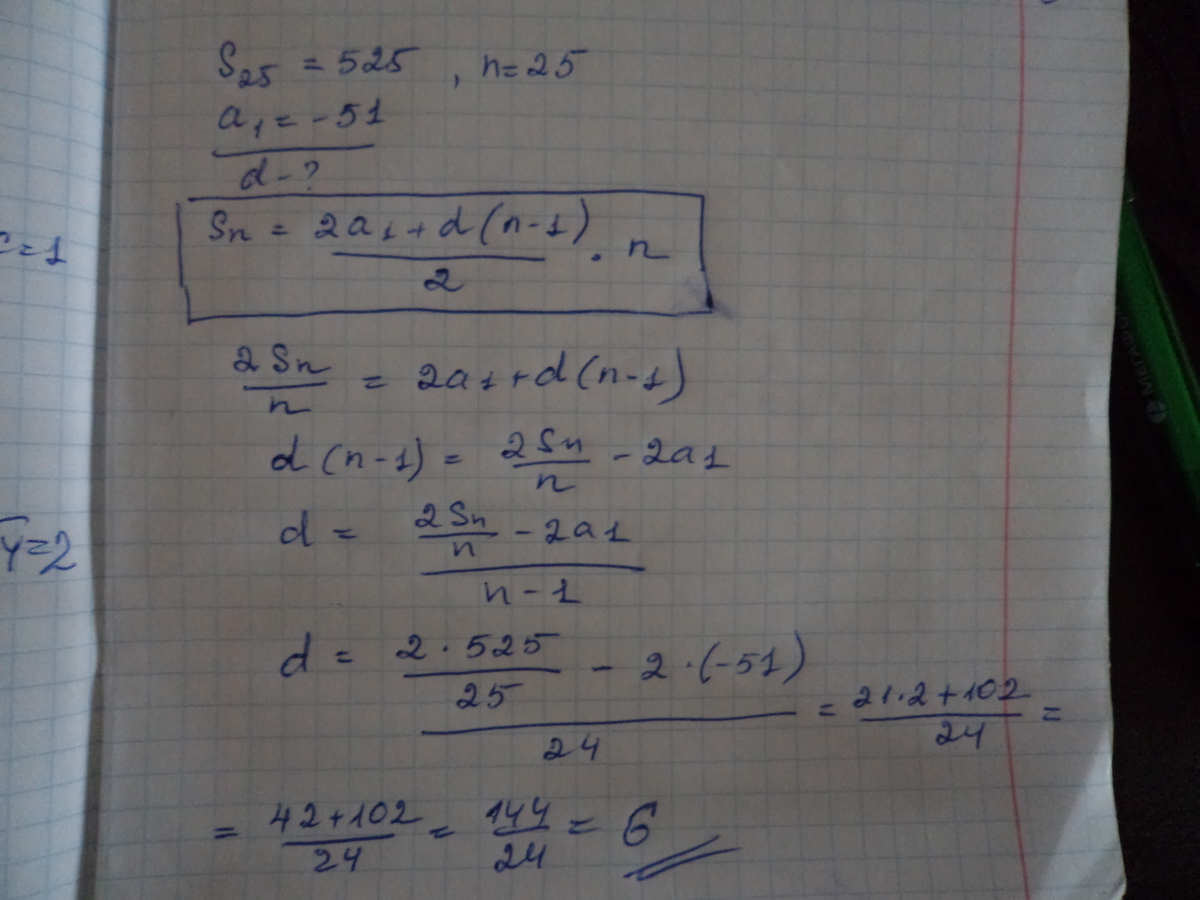 S₂₅ = 525 , n = 25
a₁ = -51
d - ?
Sn = (2a₁ + d(n-1))/2 · n
c=1
2Sn/n = 2a₁ + d(n-1)
d(n-1) = 2Sn/n - 2a₁
d = (2Sn/n - 2a₁)/(n-1)
=2
d = ((2·525)/25 - 2·(-51))/24 = (21·2+102)/24 =
= (42+102)/24 = 144/24 = 6